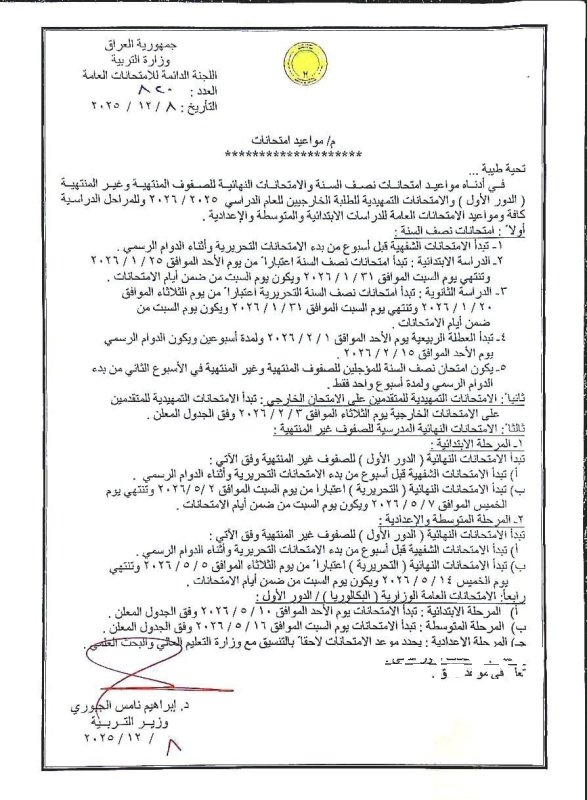 جمهورية العراق
وزارة التربية
اللجنة الدائمة للامتحانات العامة
العدد: ٨٢٠
التأريخ: ٨ / ١٢ / ٢٠٢٥
م/ مواعيد امتحانات
********************
تحية طيبة ...
في أدناه مواعيد امتحانات نصف السنة والامتحانات النهائية للصفوف المنتهية وغير المنتهية
( الدور الأول ) والامتحانات التمهيدية للطلبة الخارجيين للعام الدراسي ٢٠٢٥ / ٢٠٢٦ وللمراحل الدراسية
كافة ومواعيد الامتحانات العامة للدراسات الابتدائية والمتوسطة والإعدادية.
أولاً : امتحانات نصف السنة :
١- تبدأ الامتحانات الشفهية قبل أسبوع من بدء الامتحانات التحريرية وأثناء الدوام الرسمي .
٢- الدراسة الابتدائية : تبدأ امتحانات نصف السنة اعتباراً من يوم الأحد الموافق ٢٥ / ١ / ٢٠٢٦
وتنتهي يوم السبت الموافق ٣١ / ١ / ٢٠٢٦ ويكون يوم السبت من ضمن أيام الامتحانات .
٣- الدراسة الثانوية : تبدأ امتحانات نصف السنة التحريرية اعتباراً من يوم الثلاثاء الموافق
٢٠ / ١ / ٢٠٢٦ وتنتهي يوم السبت الموافق ٣١ / ١ / ٢٠٢٦ ويكون يوم السبت من
ضمن أيام الامتحانات .
٤- تبدأ العطلة الربيعية يوم الأحد الموافق ١ / ٢ / ٢٠٢٦ ولمدة أسبوعين ويكون الدوام الرسمي
يوم الأحد الموافق ١٥ / ٢ / ٢٠٢٦ .
٥- يكون امتحان نصف السنة للمؤجلين للصفوف المنتهية وغير المنتهية في الأسبوع الثاني من بدء
الدوام الرسمي ولمدة أسبوع واحد فقط .
ثانياً: الامتحانات التمهيدية للمتقدمين على الامتحان الخارجي : تبدأ الامتحانات التمهيدية للمتقدمين
على الامتحانات الخارجية يوم الثلاثاء الموافق ٣ / ٢ / ٢٠٢٦ وفق الجدول المعلن .
ثالثاً: الامتحانات النهائية المدرسية للصفوف غير المنتهية :
١- المرحلة الابتدائية :
تبدأ الامتحانات النهائية ( الدور الأول ) للصفوف غير المنتهية وفق الآتي :
أ) تبدأ الامتحانات الشفهية قبل أسبوع من بدء الامتحانات التحريرية وأثناء الدوام الرسمي .
ب) تبدأ الامتحانات النهائية ( التحريرية ) اعتباراً من يوم السبت الموافق ٢ / ٥ / ٢٠٢٦ وتنتهي يوم
الخميس الموافق ٧ / ٥ / ٢٠٢٦ ويكون يوم السبت من ضمن أيام الامتحانات .
٢- المرحلة المتوسطة والإعدادية :
تبدأ الامتحانات النهائية ( الدور الأول ) للصفوف غير المنتهية وفق الآتي :
أ) تبدأ الامتحانات الشفهية قبل أسبوع من بدء الامتحانات التحريرية وأثناء الدوام الرسمي .
ب) تبدأ الامتحانات النهائية ( التحريرية ) اعتباراً من يوم الثلاثاء الموافق ٥ / ٥ / ٢٠٢٦ وتنتهي
يوم الخميس ١٤ / ٥ / ٢٠٢٦ ويكون يوم السبت من ضمن أيام الامتحانات .
رابعاً: الامتحانات العامة الوزارية ( البكالوريا ) / الدور الأول :
أ) المرحلة الابتدائية : تبدأ الامتحانات يوم الأحد الموافق ١٠ / ٥ / ٢٠٢٦ وفق الجدول المعلن .
ب) المرحلة المتوسطة : تبدأ الامتحانات يوم السبت الموافق ١٦ / ٥ / ٢٠٢٦ وفق الجدول المعلن .
جـ) المرحلة الإعدادية : يحدد موعد الامتحانات لاحقاً بالتنسيق مع وزارة التعليم العالي والبحث العلمي .
د. إبراهيم نامس الجبوري
وزير التربية
٨ / ١٢ / ٢٠٢٥